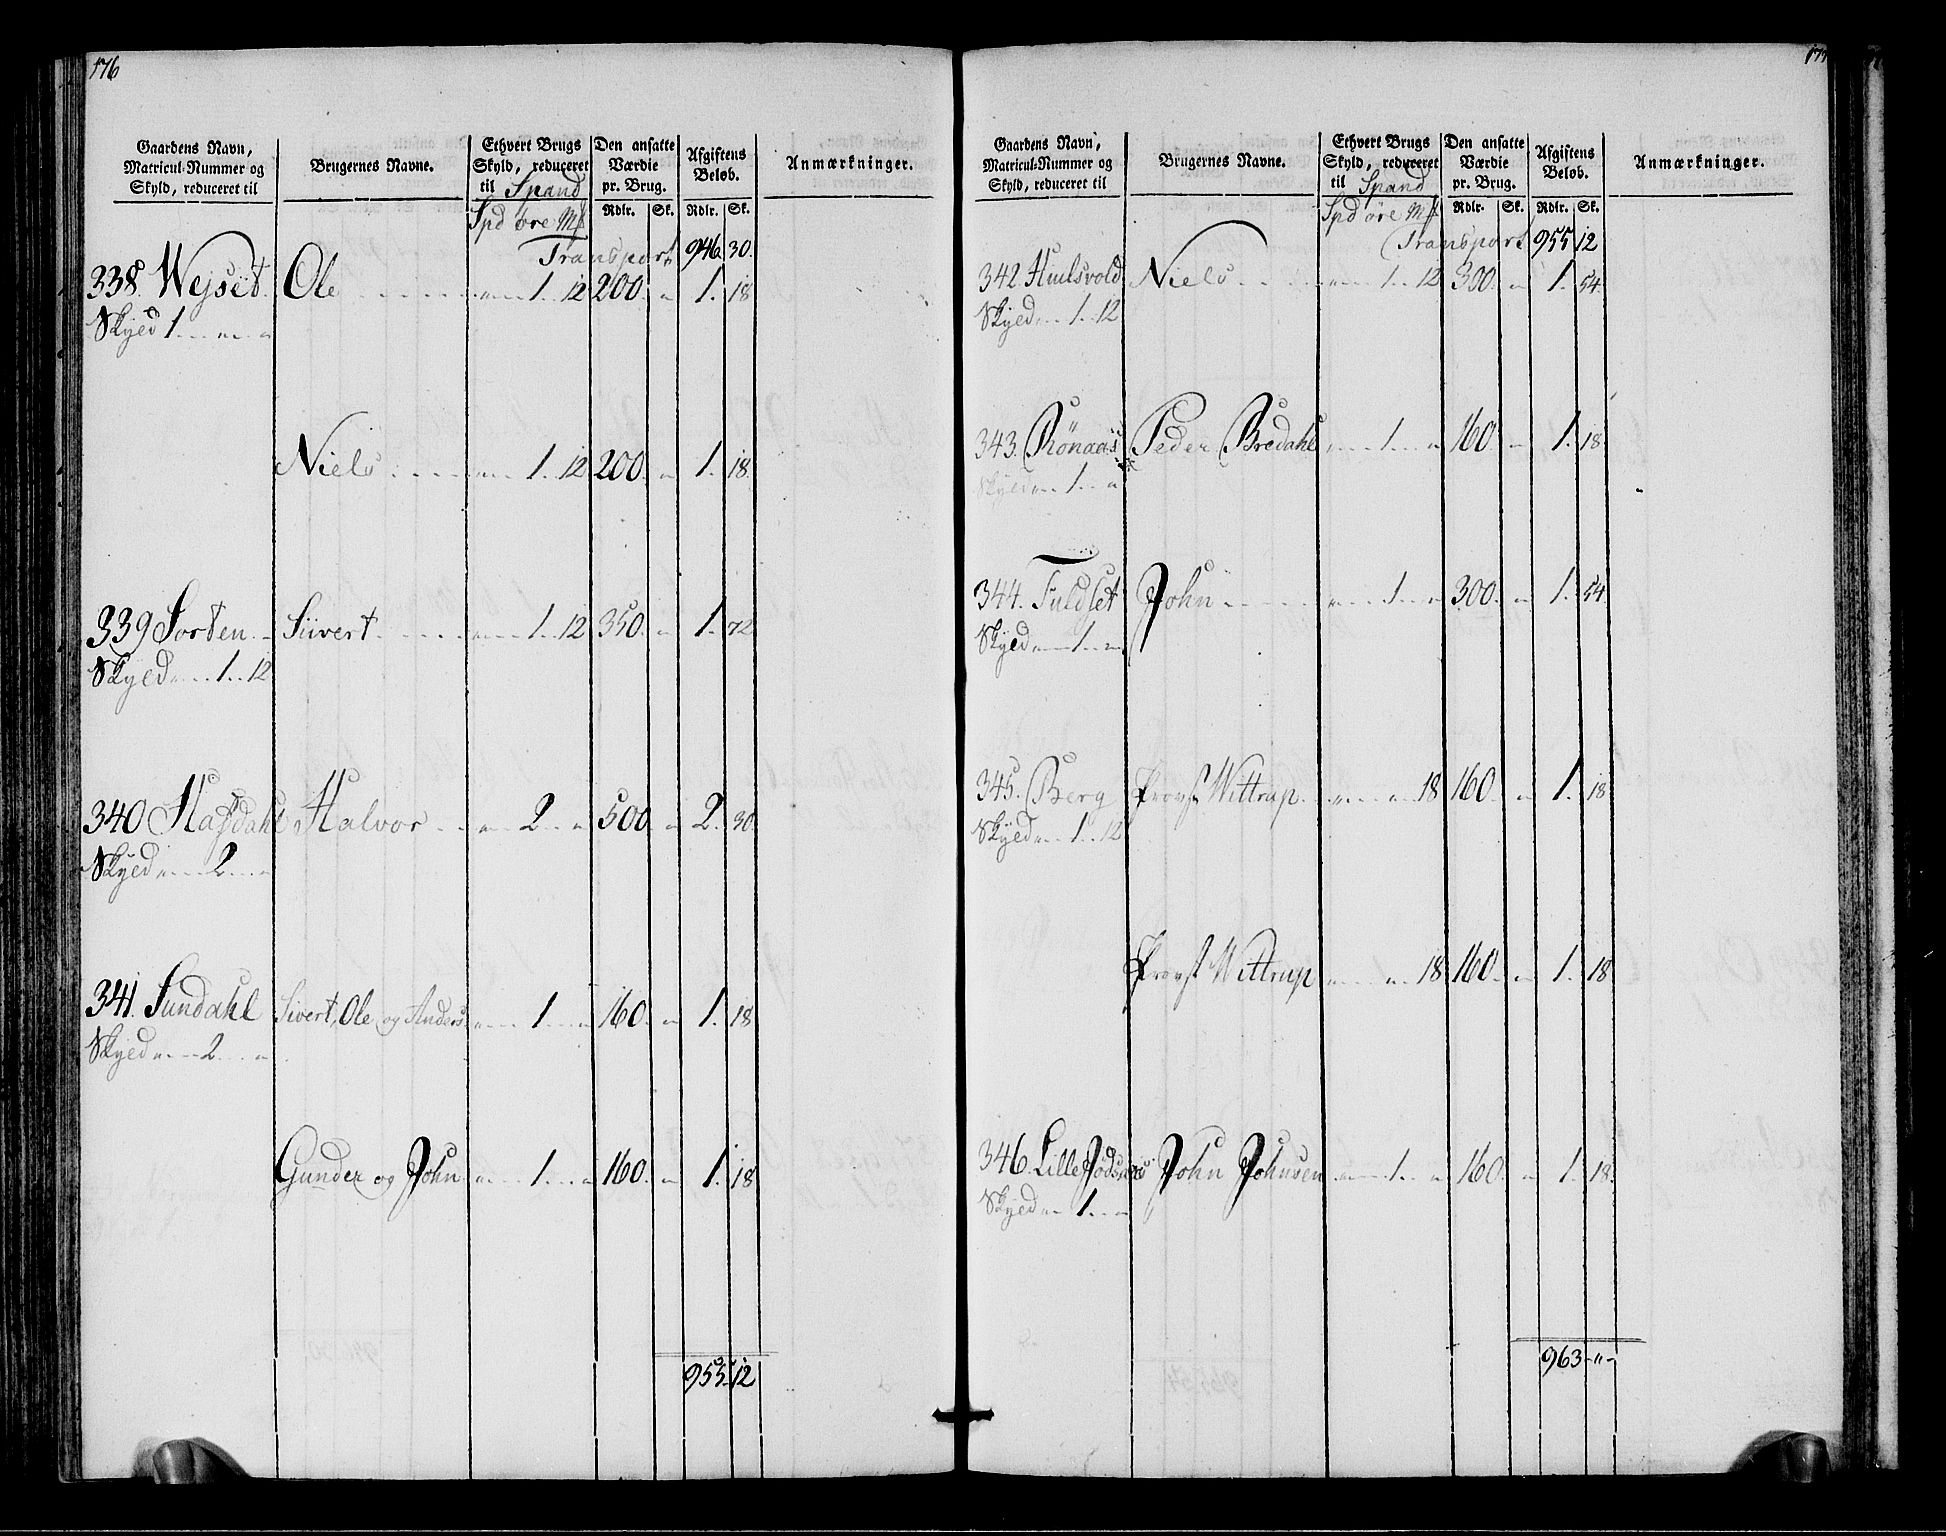 176
Gaardens Navn, Matricul-Nummer og Skyld, reduceret til
Brugernes Navne.
Ethvert Brugs Skyld, reduceret til Spand
Den ansatte Værdie pr. Brug.
Afgiftens Beløb.
Anmærkninger.
Spd øre Mk
Rdlr. Sk. Rdlr. Sk.
Transport 946. 30.
338. Wejset Ole 1 12 200. 1. 18
Skyed 1
Niels 1 12 200. 1. 18.
339 Sorten Siivert 1 12 350. 1. 72
Skyed 1 12
340 Hasdahl Halvor 2 500 2. 30.
Skyed 2
341. Sundahl Sivert, Ole og Anders 1 160. 1. 18
Skyed 2
Gunder og John 1 160. 1. 18
955. 12
177
Gaardens Navn, Matricul-Nummer og Skyld, reduceret til
Brugernes Navne.
Ethvert Brugs Skyld, reduceret til Spand
Den ansatte Værdie pr. Brug.
Afgiftens Beløb.
Anmærkninger.
Spd øre Mk
Rdlr. Sk. Rdlr. Sk.
Transport 955 12
342 Huulsvold Niels 1 12 300. 1. 54.
Skyed 1 12
343. Rönaas Peder Bredahl 1 160 1. 18
Skyed 1
344. Fuldset John 1 300. 1. 54
Skyed 1
345. Berg Provst Wittrup 18 160. 1. 18
Skyed 1 12
Provst Wittrup 18 160. 1. 18
346. Lille John Johnsen 1 160. 1. 18.
Skyed 1
963 - " -